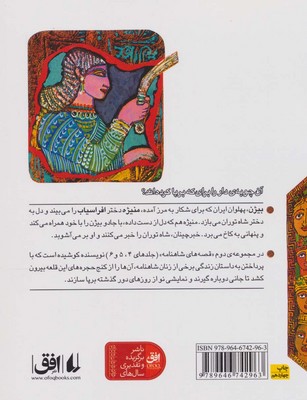 آن چوبه‌ی دار را برای که برپا کرده‌اند؟
بیژن، پهلوان ایران که برای شکار به مرز آمده، منیژه دختر افراسیاب را می‌بیند و دل به
دختر شاه توران می‌بازد. منیژه هم که دل از دست داده، با جادو بیژن را با خود همراه می‌کند
و پنهانی به کاخ می‌برد. خبرچینان، شاه توران را خبر می‌کنند و او بر می‌آشوبد.
در مجموعه‌ی دوم «قصه‌های شاهنامه» (جلدهای ۴، ۵ و ۶) نویسنده کوشیده است که با
پرداختن به داستان زندگی برخی از زنان شاهنامه، آن‌ها را از کنج حجره‌های این قلعه بیرون
کشد تا جانی دوباره گیرند و نمایشی نو از روزهای دور گذشته برپا سازند.
ISBN 978-964-6742-96-3
9789646742963
ناشر
برگزیده
و تقدیری
سال‌های
افق
www.ofoqbooks.com
چاپ
چهاردهم